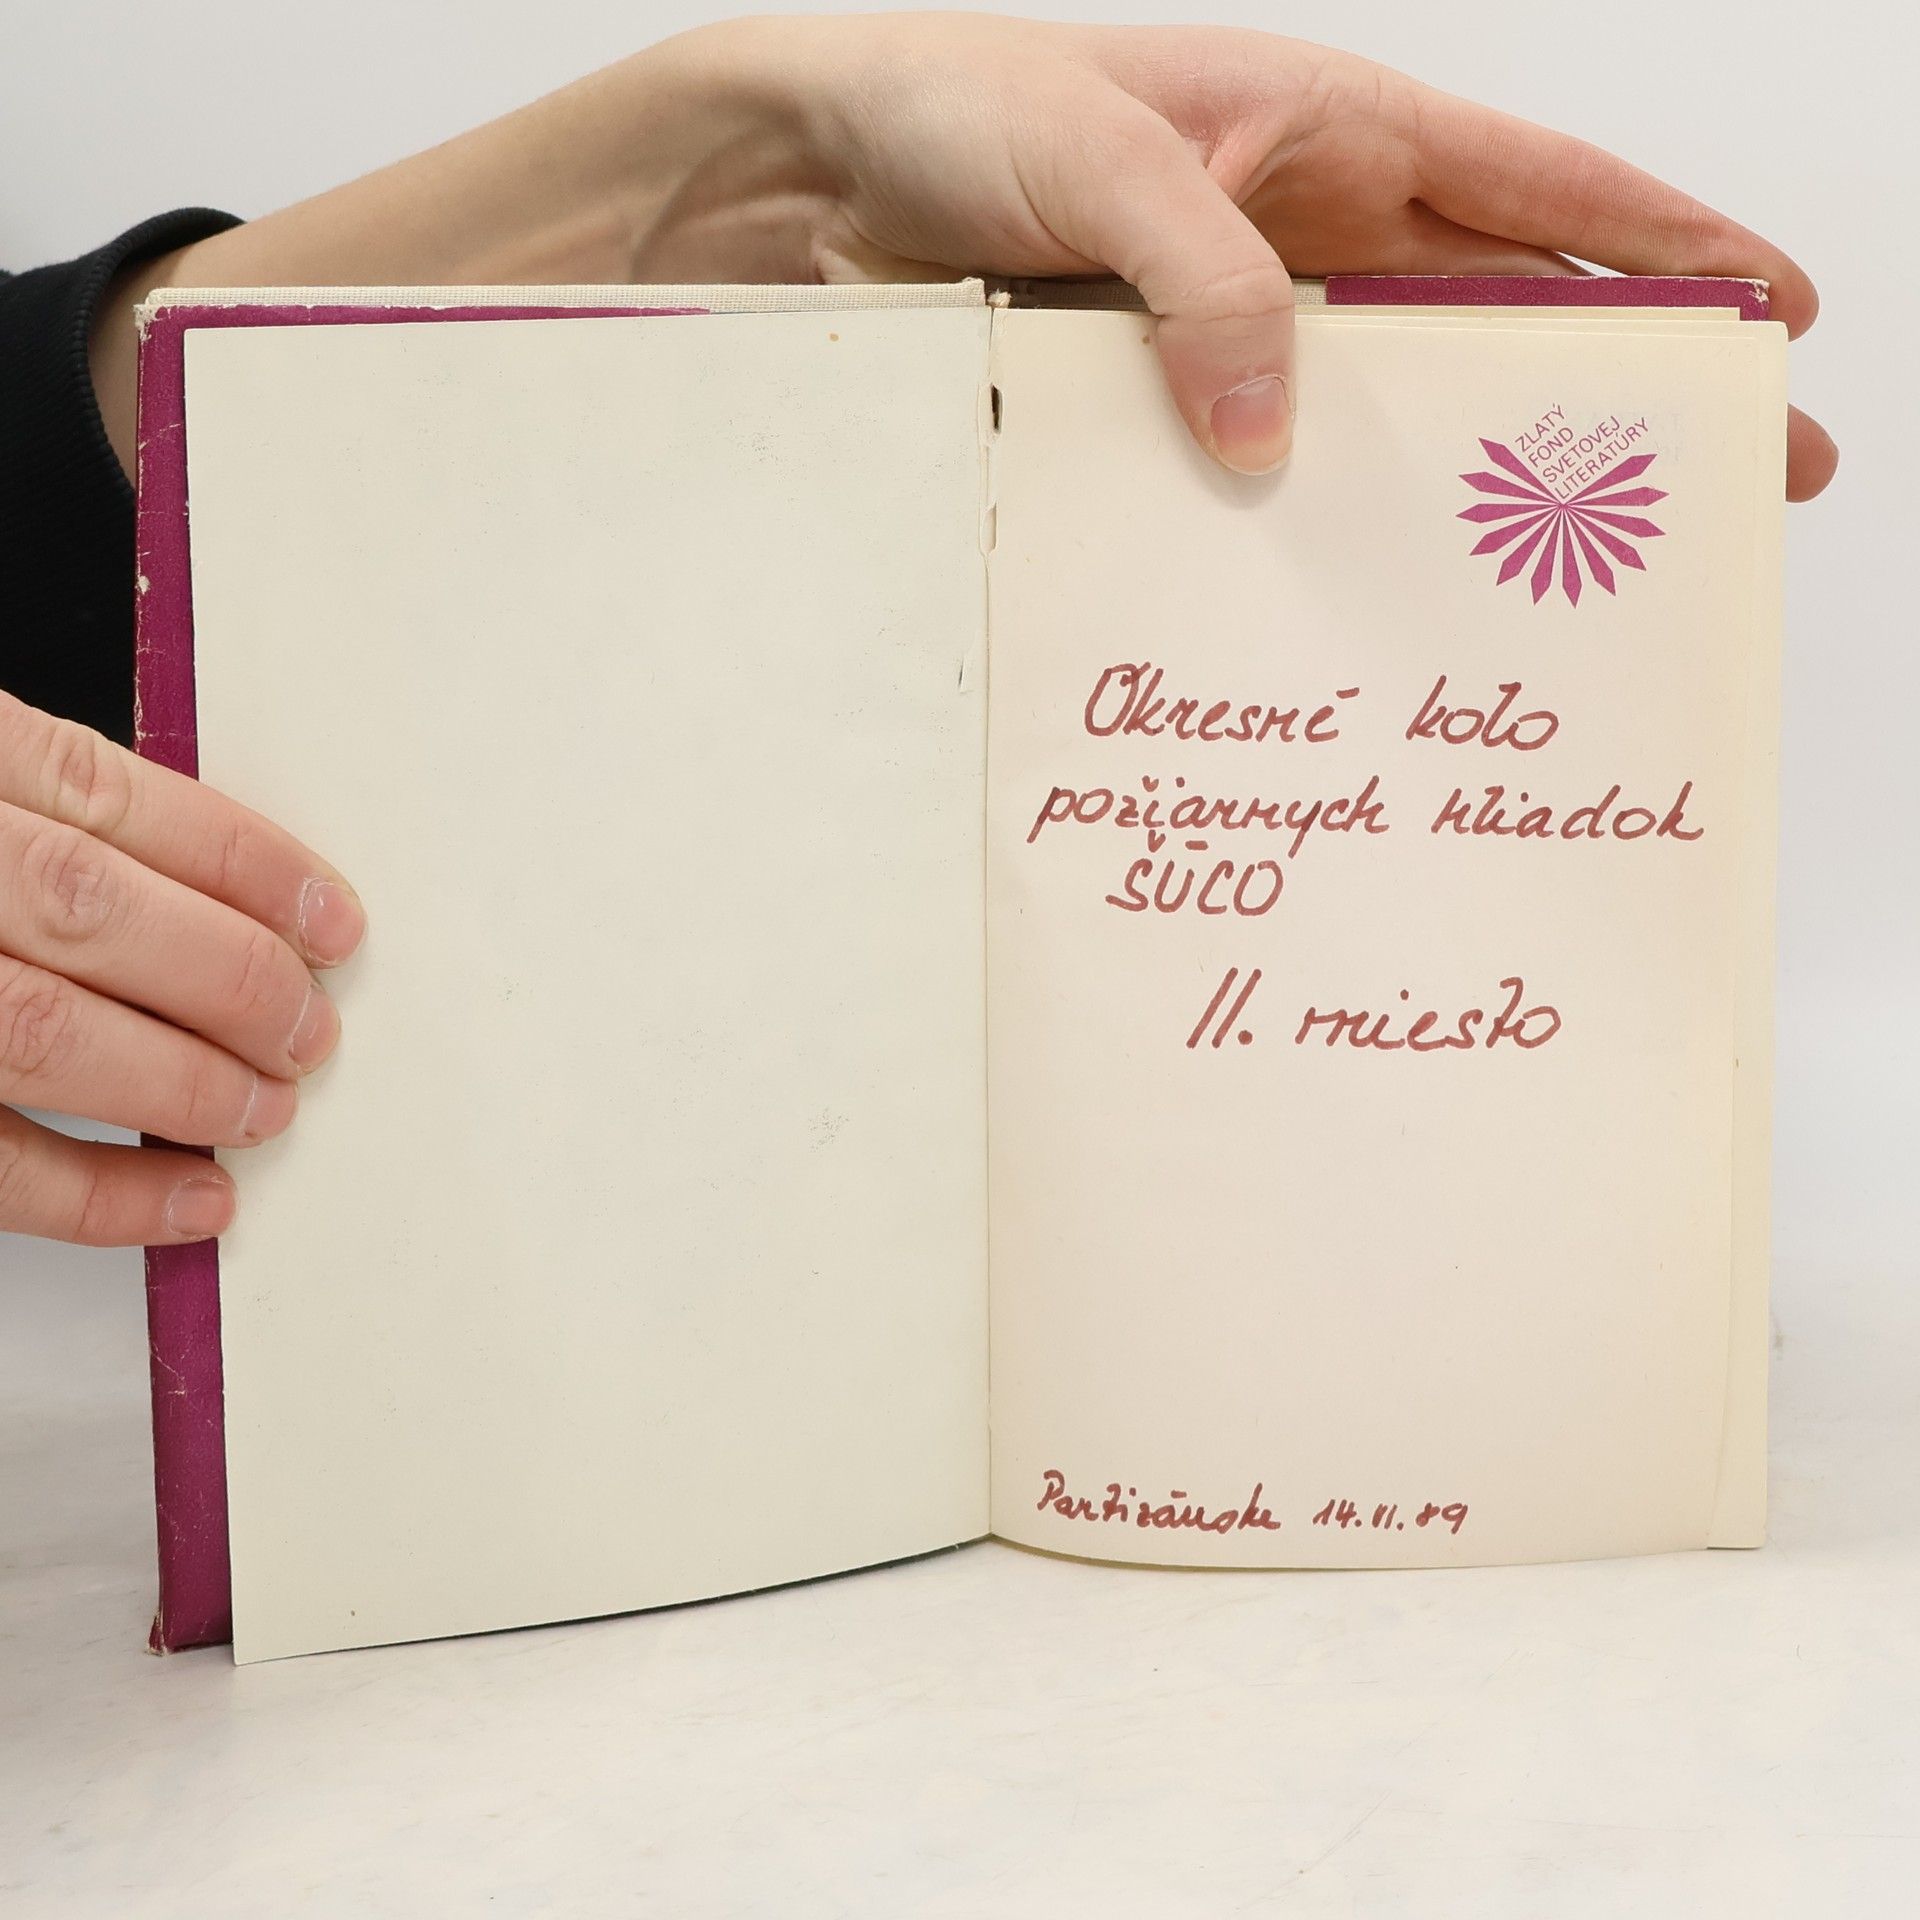 ZLATÝ
FOND
SVETOVEJ
LITERATÚRY
Okresné kolo
požiarnych hliadok
ŠÚCO
II. miesto
Partizánske 14.VI.89